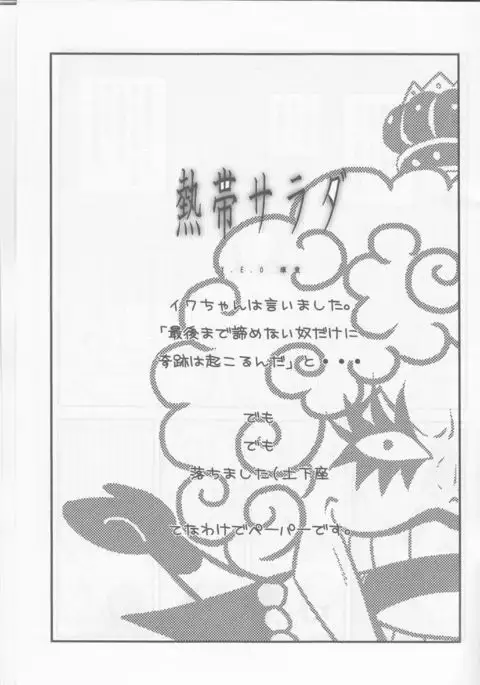 熱帯サラダ
イワちゃんは言いました。
「最後まで諦めない奴だけに
奇跡は起こるんだ」と・・・
でも
でも
落ちました(土下座
てなわけでペーパーです。